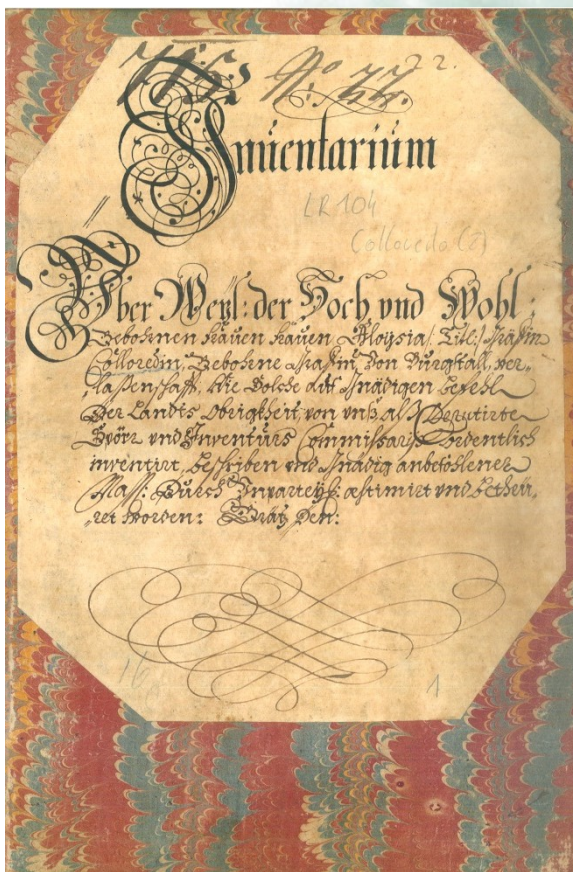 N:o 22.
Inuentarium
LR 104
Colloredo (2)
Über Weyl: der Hoch vnd Wohl:
Gebohrnen Frauen Frauen Aloysia /: Titl: / Gräfin
Colloredin, Gebohrne Gräfin Von Purgstall, ver,
laßenschafft, Wie Solche auf Gnädigen befehl
Der Landts Obrigkheit, von vnß, alß Deputirte
Spörr vnd Inventurs Commissarÿ Ordentlich
inventirt, beschriben vnd Gnädig anbefohlener
Mass: Durch Inparteyß: æstimirt vnd betheü,
ret worden: Gräz Den:
16
1